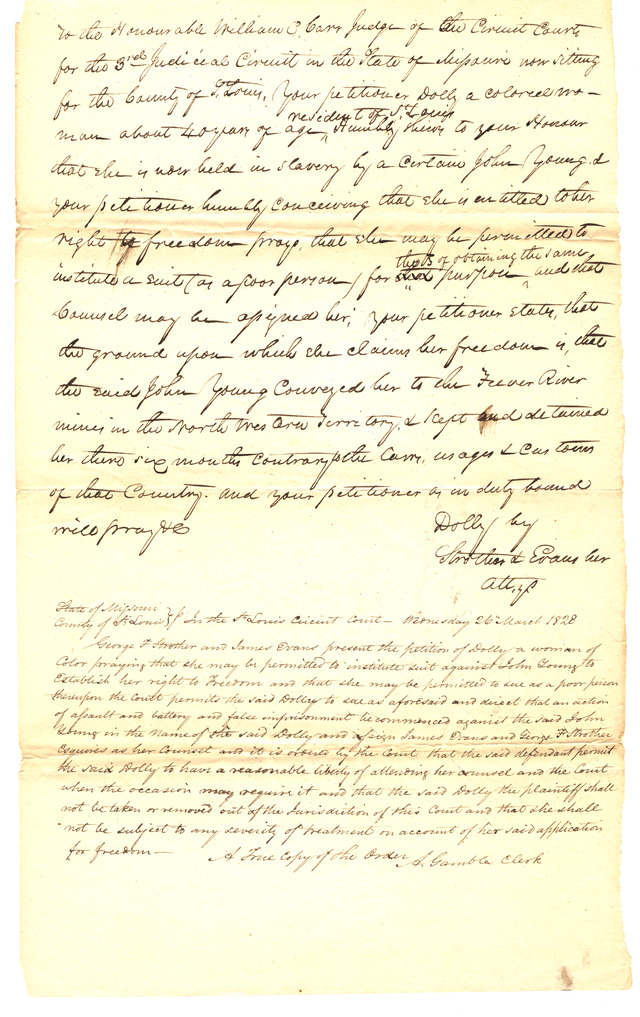 To the Honourable William C. Carr Judge of the Circuit Court
for the 3rd Judicial Circuit in the State of Missouri now sitting
for the County of St. Louis, Your petitioner Dolly a colored wo-
resident of St. Louis
man about 40 years of age, Humbly shews to your Honour
that she is now held in Slavery by a certain John Young, &
your petitioner humbly conceiving that she is entitled to her
right to freedom prays, that she may be permitted to
of obtaining the same
institute a suit (as a poor person) for purpose and that
Counsel may be assigned her; your petitioner states, that
the ground upon which she claims her freedom is, that
the said John Young Conveyed her to the Feever River
mines in the North Western Territory, & kept and detained
her there six months contrary to the laws, usages & customs
of that Country. and your petitioner as in duty bound
will pray &c
Dolly by
Strother & Evans her
Attys
State of Missouri
County of St Louis } In the St Louis Circuit Court – Wednesday 26th March 1828
George F Strother and James Evans present the petition of Dolly a woman of
Color praying that she may be permitted to institute suit against John Young to
Establish her right to Freedom and that she may be permitted to sue as a poor person
thereupon the Court permits the said Dolly to sue as aforesaid and direct that an action
of assault and battery and false imprisonment be commenced against the said John
Young in the Name of the said Dolly and assign James Evans and George F Strother
Esquires as her Counsel and it is ordered by the Court that the said defendant permit
the said Dolly to have a reasonable liberty of attending her counsel and the Court
when the occasion may require it and that the said Dolly the plaintiff shall
not be taken or removed out of the Jurisdiction of this Court and that she shall
not be subject to any severity of treatment on account of her said application
for freedom —
A True Copy of the Order A. Gamble Clerk